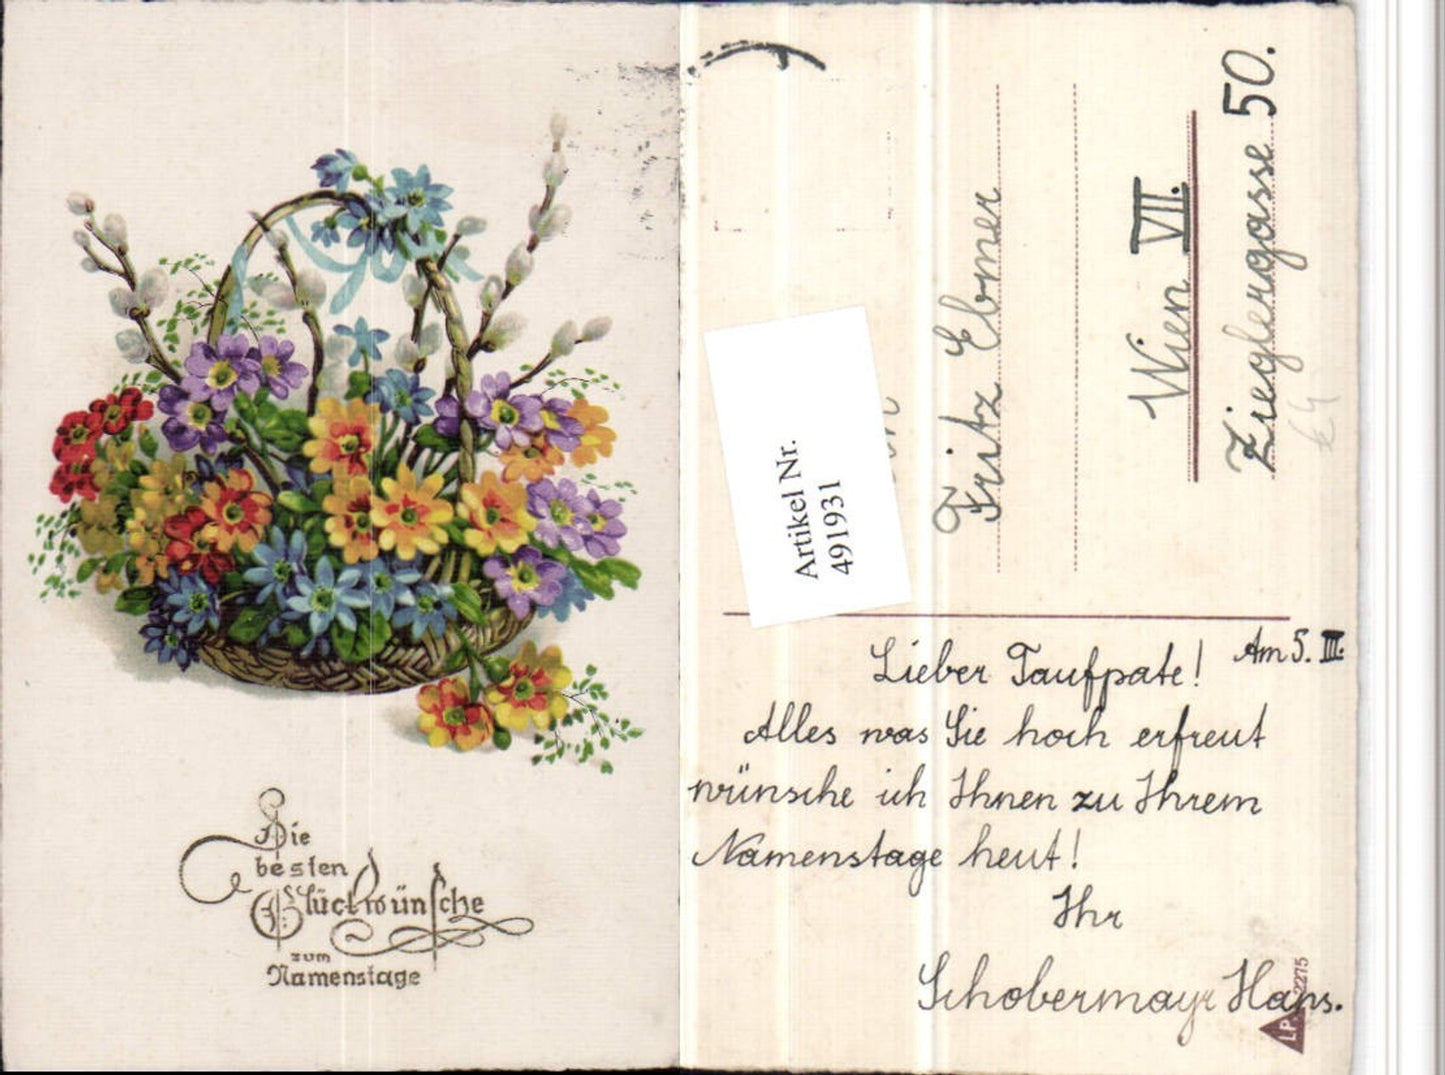 Die
besten
Glückwünsche
zum
Namenstage
Artikel Nr.
491931
Fritz Ebmer
Wien VII.
Zieglergasse 50.
Am 5. III.
Lieber Taufpate!
Alles was Sie hoch erfreut
wünsche ich Ihnen zu Ihrem
Namenstage heut!
Ihr
Schobermayr Hans.
L.P. 2275